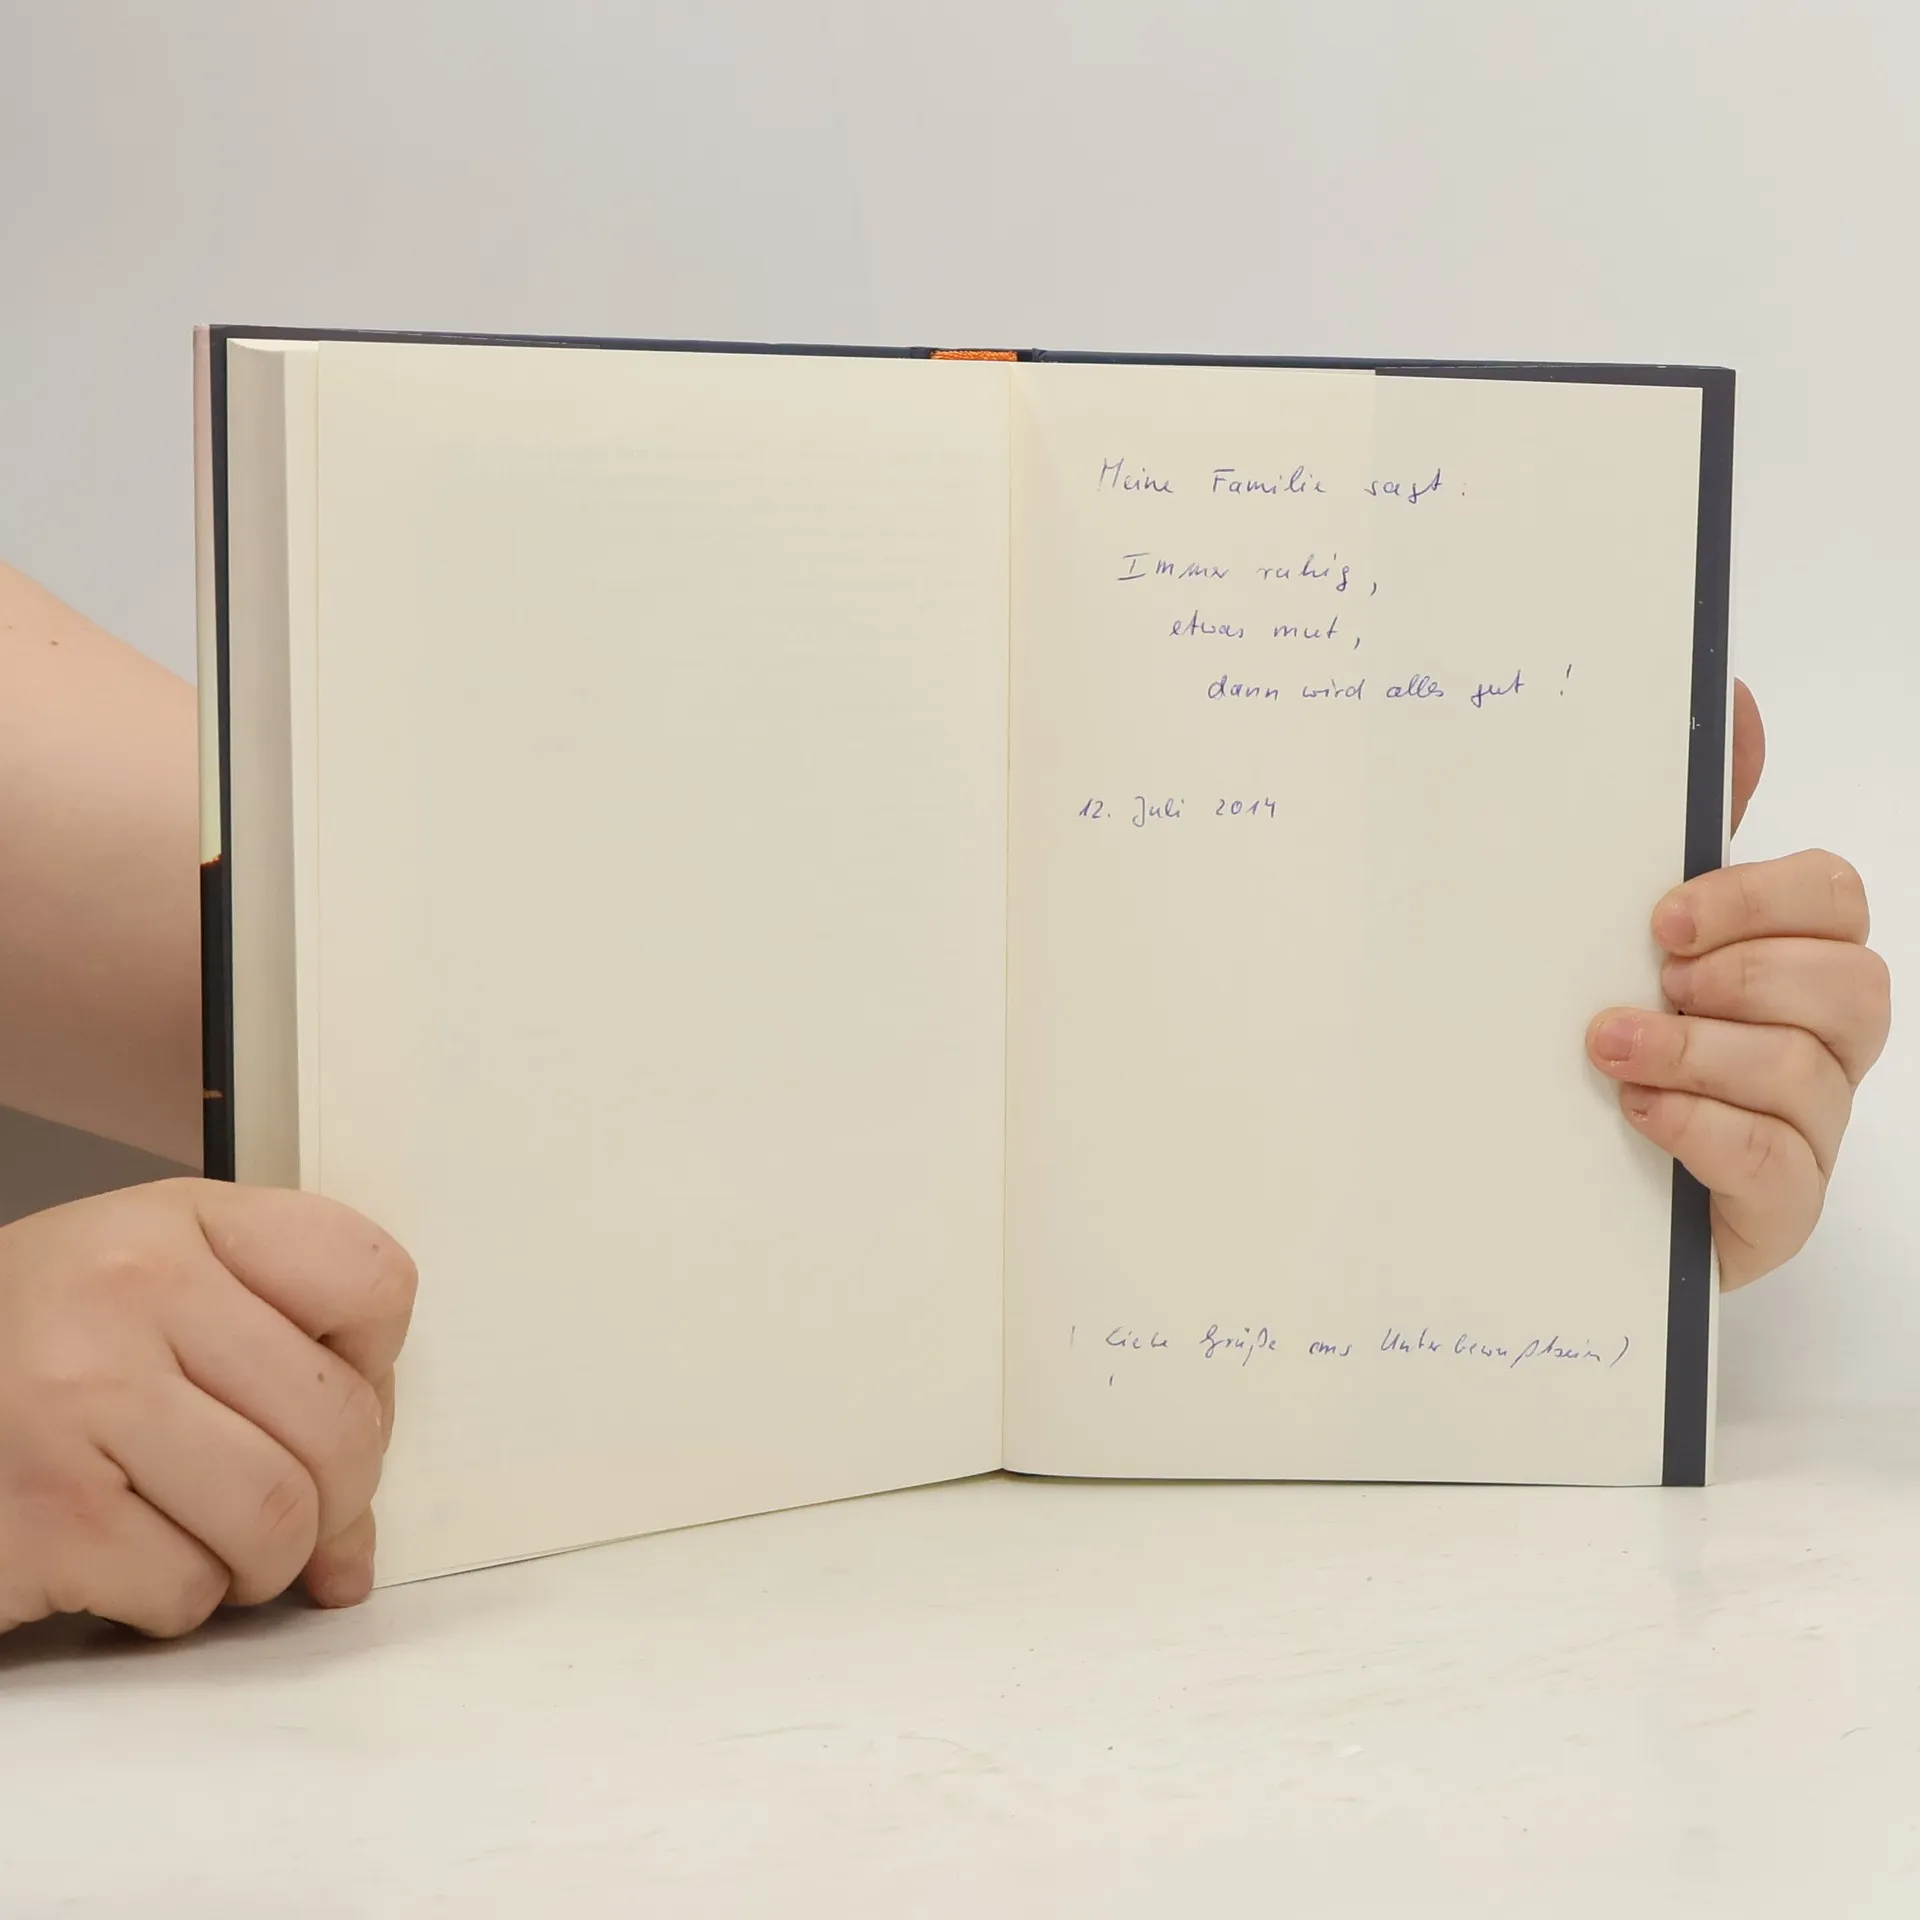 Meine Familie sagt:
Immer ruhig,
etwas mut,
dann wird alles gut!
12. Juli 2014
(Liebe Grüße ans Unterbewußtsein)